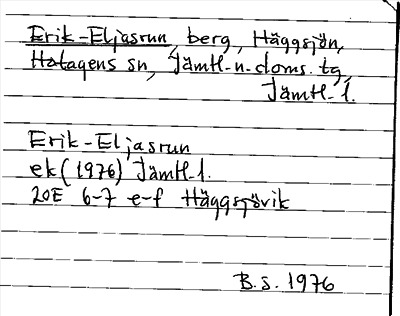 Erik-Eljasrun, berg, Häggsjön,
Hotagens sn, Jämtl-n-doms. tg,
Jämtl. l.
Erik-Eljasrun
ek (1976) Jämtl. l.
20E 6-7 e-f Häggsjövik
B.S. 1976